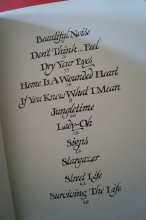 Beautiful Noise
Don't Think... Feel
Dry Your Eyes
Home Is A Wounded Heart
If You Know What I Mean
Jungletime
Lady-Oh
Signs
Stargazer
Street Life
Surviving The Life